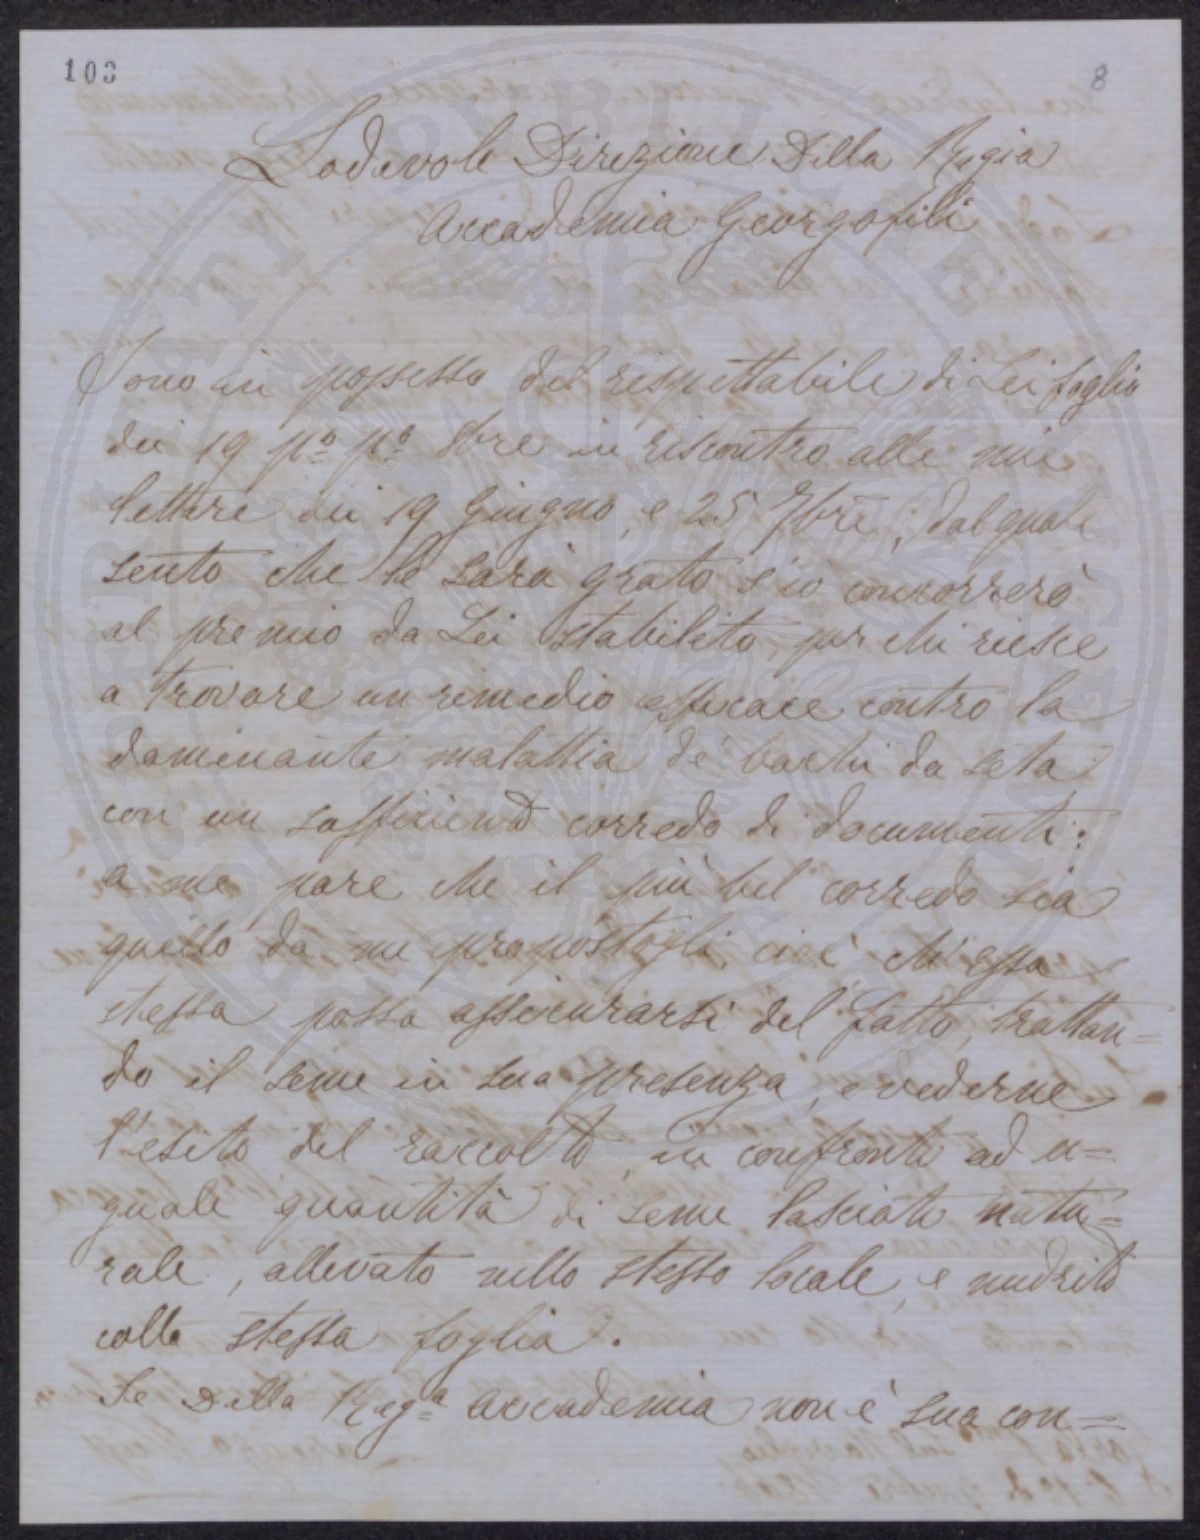 103
8
Lodevole Direzione Della Regia
Accademia Georgofili
Sono in possesso del rispettabile di Lei foglio
dei 19 p.º p.º 8bre in riscontro alle mie
lettere dei 19 Giugno, e 25 7bre, dal quale
sento che le sarà grato s'io concorrerò
al premio da Lei stabilito, per chi riesce
a trovare un rimedio efficace contro la
dominante malattia de' bachi da seta
con un sufficiente corredo di documenti:
a me pare che il più bel corredo sia
quello da me propostogli, cioè ch'essa
stessa possa assicurarsi del fatto, trattan=
do il seme in sua presenza, e vederne
l'esito del raccolto, in confronto ad u=
guale quantità di seme lasciato natu=
rale, allevato nello stesso locale, e nudrito
colla stessa foglia.
Se Della Reg.ª Accademia non è sua con=